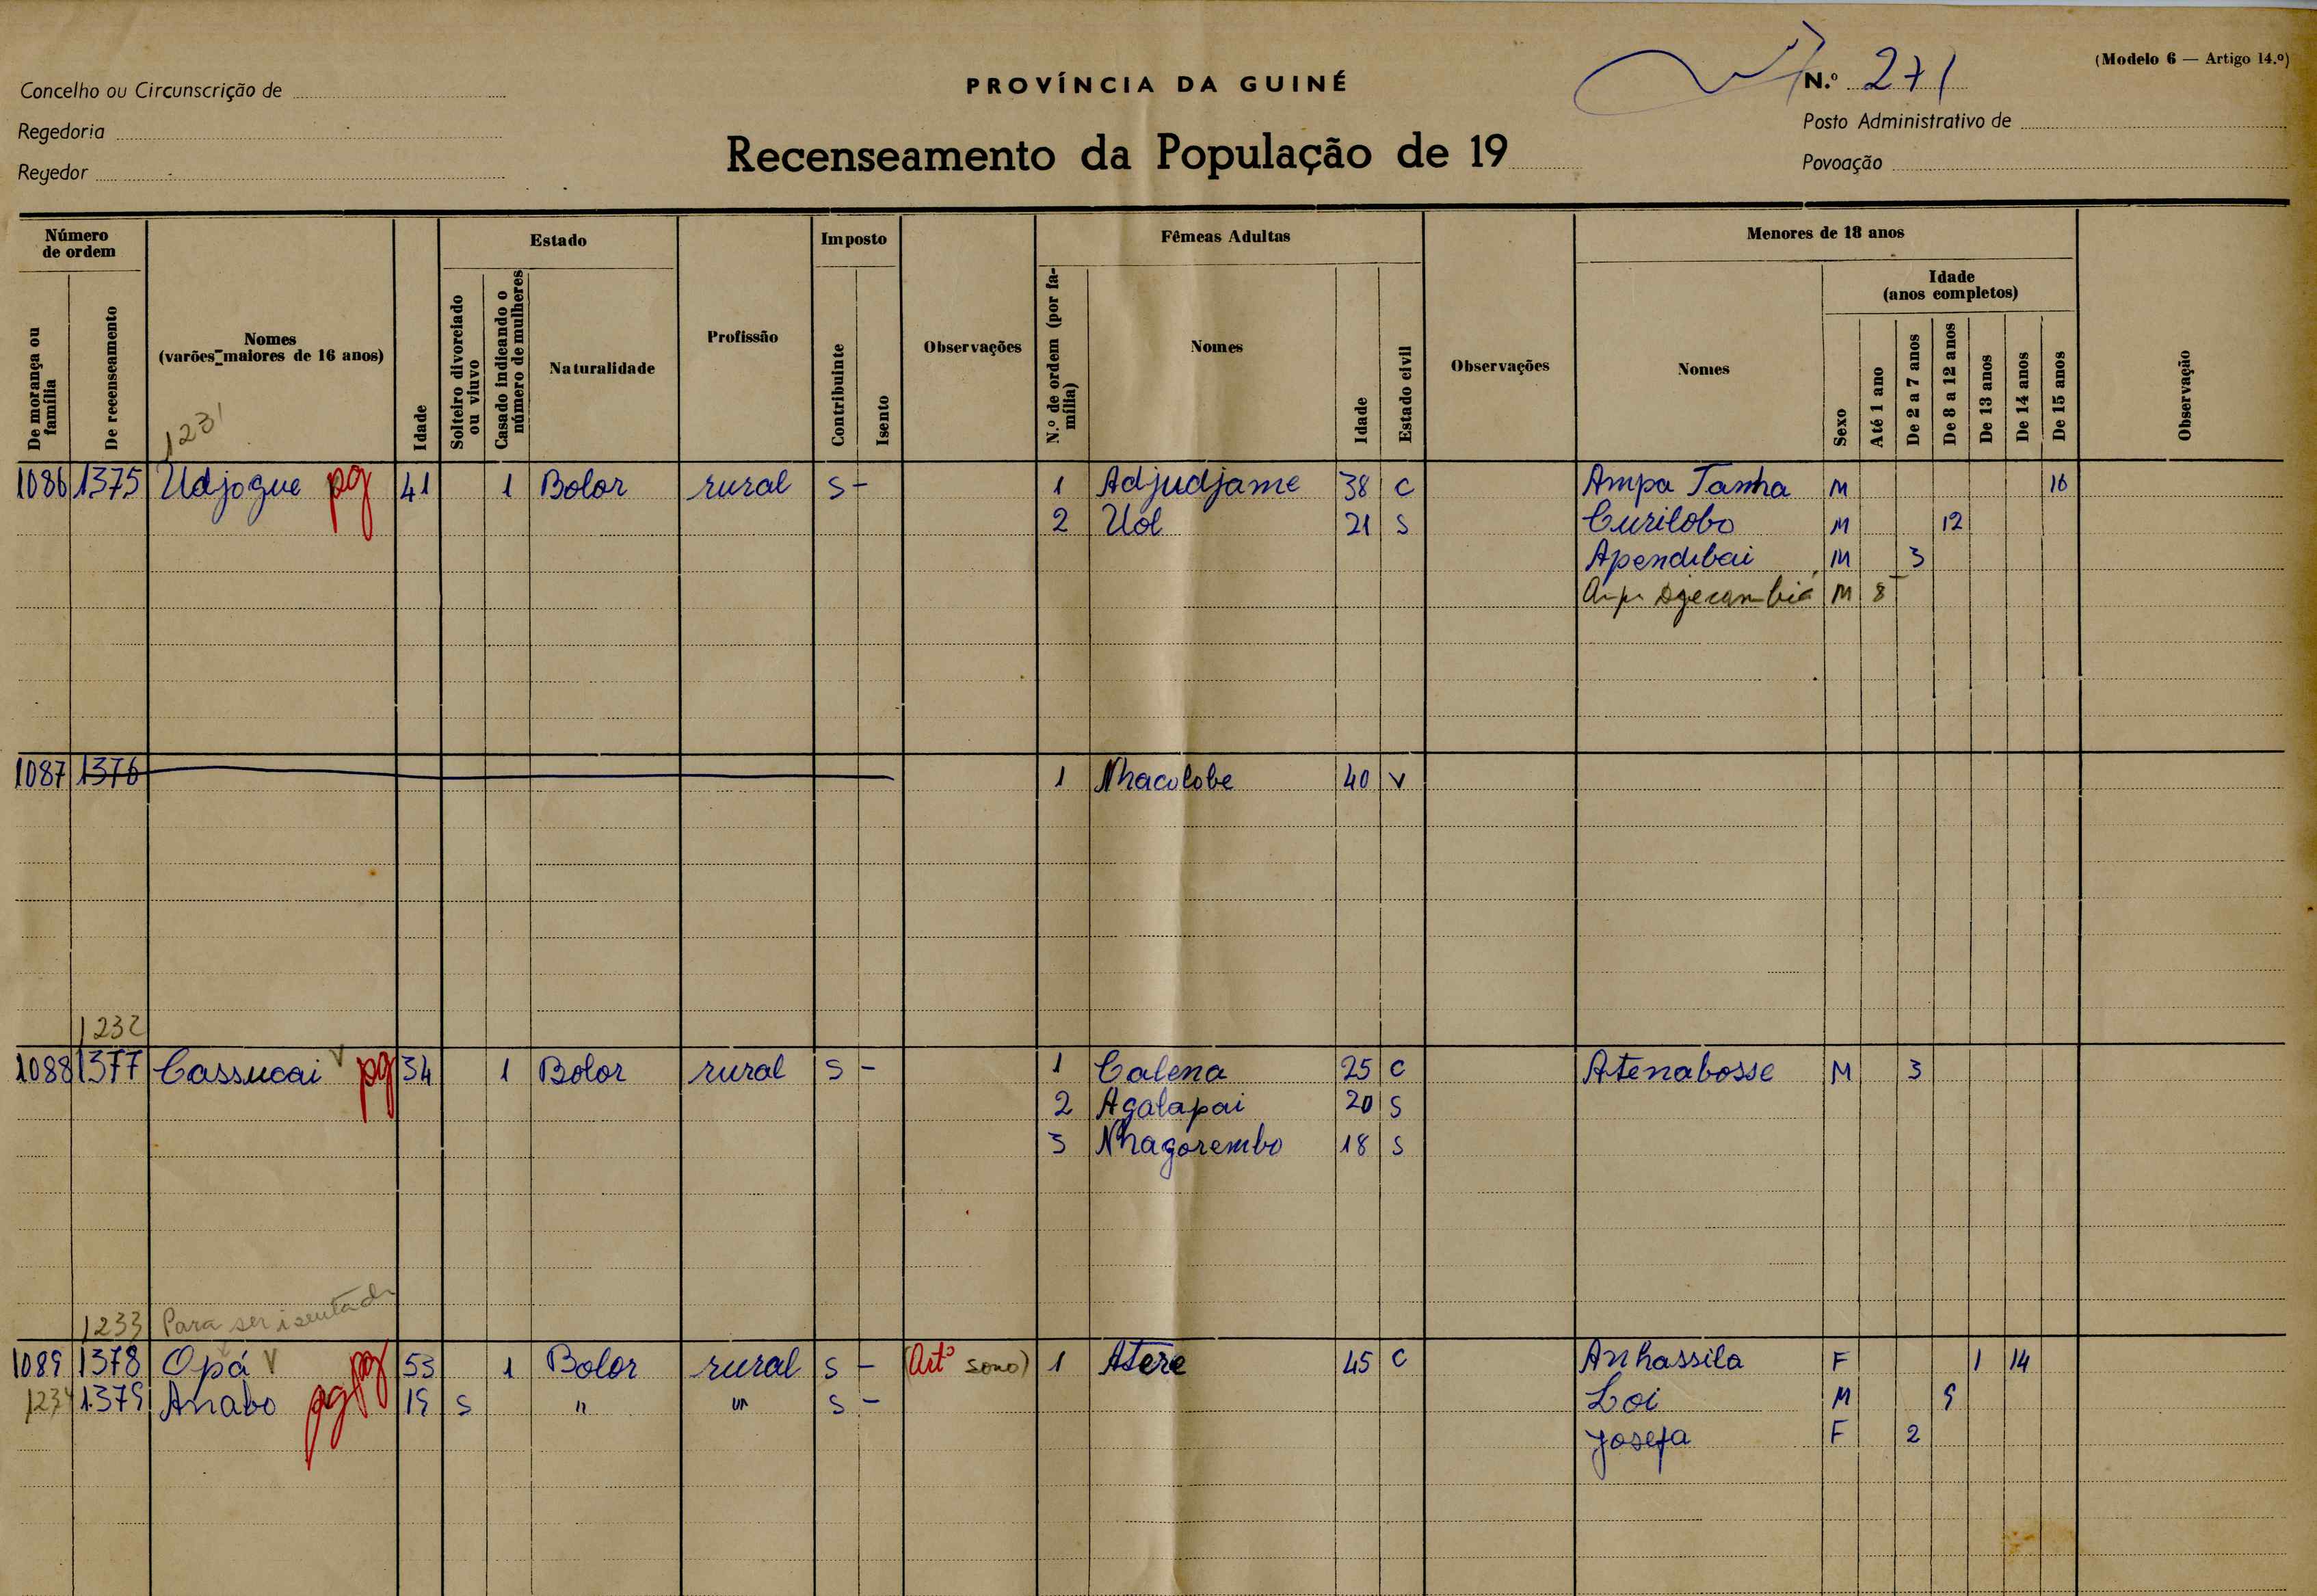 (Modelo 6 — Artigo 14.º)
Concelho ou Circunscrição de
PROVÍNCIA DA GUINÉ
N.º 271
Regedoria
Posto Administrativo de
Regedor
Recenseamento da População de 19
Povoação
Número de ordem
Estado
Imposto
Fêmeas Adultas
Menores de 18 anos
De morança ou família
De recenseamento
Nomes (varões maiores de 16 anos)
Idade
Solteiro divorciado ou viuvo
Casado indicando o número de mulheres
Naturalidade
Profissão
Contribuinte
Isento
Observações
N.º de ordem (por família)
Nomes
Idade
Estado civil
Observações
Nomes
Sexo
Idade (anos completos)
Até 1 ano
De 2 a 7 anos
De 8 a 12 anos
De 13 anos
De 14 anos
De 15 anos
Observação
1231
1086 1375 Udjogue pg 41 1 Bolor rural S - 1 Adjudjame 38 C Ampa Tanha M 16
2 Uol 21 S Curilobo M 12
Apendibai M 3
M 8
1087 1376 1 Nhacolobe 40 V
1232
1088 1377 Cassucai V pg 34 1 Bolor rural S - 1 Calena 25 C Atenabosse M 3
2 Agalapai 20 S
3 Nhagorembo 18 S
1233 Para ser isentado
1089 1378 Opá V pg 53 1 Bolor rural S - (Artº sono) 1 Atere 45 C Anhassila F 1 14
1234 1379 Anabo pg 19 S " " S - Loi M 9
Josefa F 2